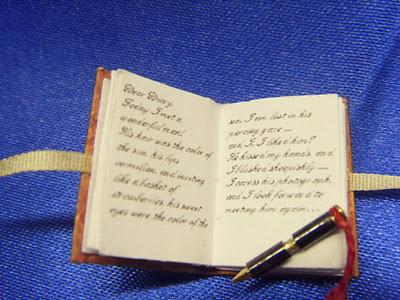 Dear Diary,
Today I met a
wonderful man!
His hair was the color of
the sun, his lips
vermilion and inviting
like a basket of
strawberries, his sweet
eyes were the color of the
sea. I am lost in his
piercing gaze ....
and I, I liked him?
He kissed my hands, and
I blushed sheepishly ....
I caress his photograph,
and I look forward to
meeting him again . . .